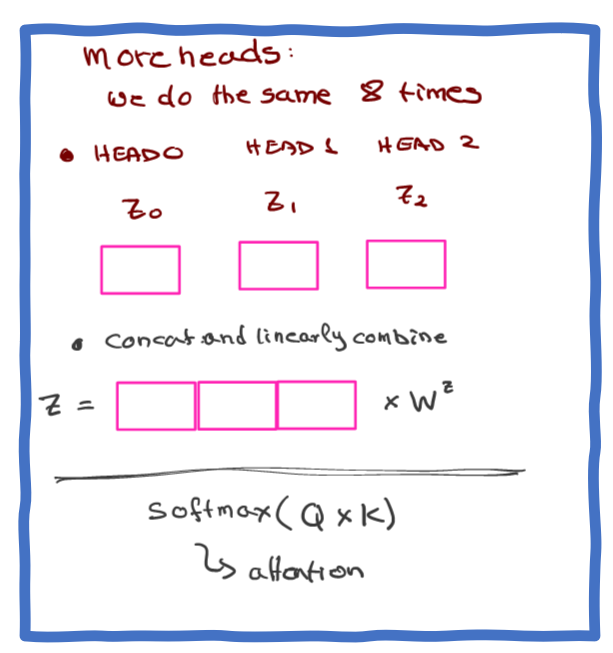 more heads:
we do the same 8 times
• HEAD0 HEAD 1 HEAD 2
Z₀ Z₁ Z₂
• concat and linearly combine
Z = × Wᶻ
softmax(Q × K)
↳ attention